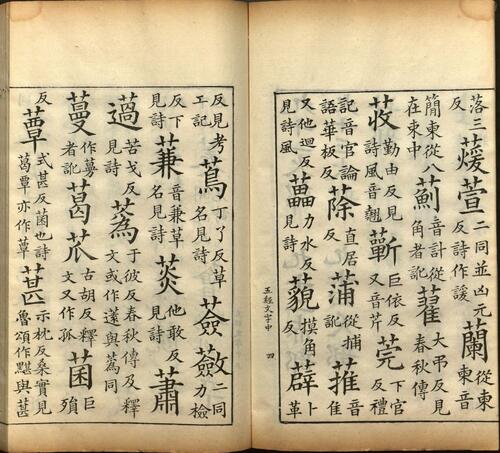 落三反蕿萱二同並凶元反詩作諼蘭從東東音
簡東從八在束中薊音計從角者訛藋大弔反見春秋傳
荍勤由反見詩風音翹蘄巨依反又音芹莞下官反禮
記音官論語華板反蒢直居反蒲從捕訛蓷音隹
又他迴反見詩風藟力水反見詩藐摸角反薜卜革
五經文字中 四
反見考工記蔦丁了反草名見詩薟蘞二同力檢
反下見詩蒹音兼草名見詩菼他敢反見詩蕭
薖苦戈反見詩蒍于彼反春秋傳及釋文或作薳與蒍同
蔓作蔓者訛葛苽古胡反釋文又作孤菌巨殞
反蕈式甚反菌也詩葛蕈亦作蕈葚示枕反桑實見魯頌作黮與葚